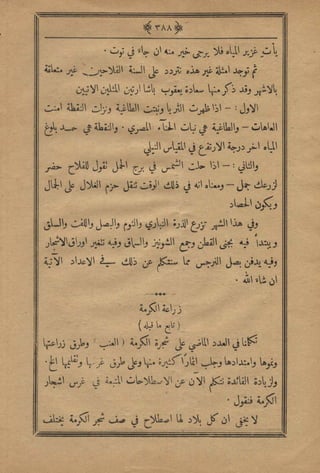 ﴿ ٣٨٨ ﴾
يأت غزير المياه فلا يرجى خير منه ان جاء في توت ٠
ثم توجد امثلة غير هذه تتردد على السنة الفلاحين غير متعلقة
بالاشهر وقد ذكر منها سعادة يعقوب باشا ارتين المثلين الاتيين
الاول : – اذا ظهرت الثريا ونبتت الطاغية ونزلت النقطة امنت
العاهات – والطاغية هي نبات الحناء المصري ٠ والنقطة هي حسد بلوغ
المياه اخر درجة الارتفع في المقياس النيلي
والثاني : – اذا حلت الشمس في برج الحمل تقول للفلاح حضر
لزرعك جمل – ومعناه انه في ذلك الوقت تنقل حزم الغلال على الجمال
ويكون الحصاد
وفي هذا الشهر تزرع الذرة النباري والثوم والبصل واللفت والسلق
ويبتدأ فيه بجنى القطن وجمع الشونيز والسماق وفيه تتغير اوراق الاشجار
وفيه يدفن بصل النرجس مما سنتكلم عن ذلك في الاعداد الآتية
ان شاء الله ٠
زراعة الكرمة
( تابع ما قبله )
تكلمنا في العدد الماضي على شجرة الكرمة ( العنب ) وطرق زراعتها
ونموها وامتدادها وجلب اثمار كثيرة منها وعلى طرق غرسها وتقليمها الخ ٠
ولزيادة الفائدة نتكلم الآن عن الاصطلاحات المتبعة في غرس اشجار
الكرمة فنقول ٠
لا يخفى ان كل بلاد لها اصطلاح في صف شجر الكرمة يختلف